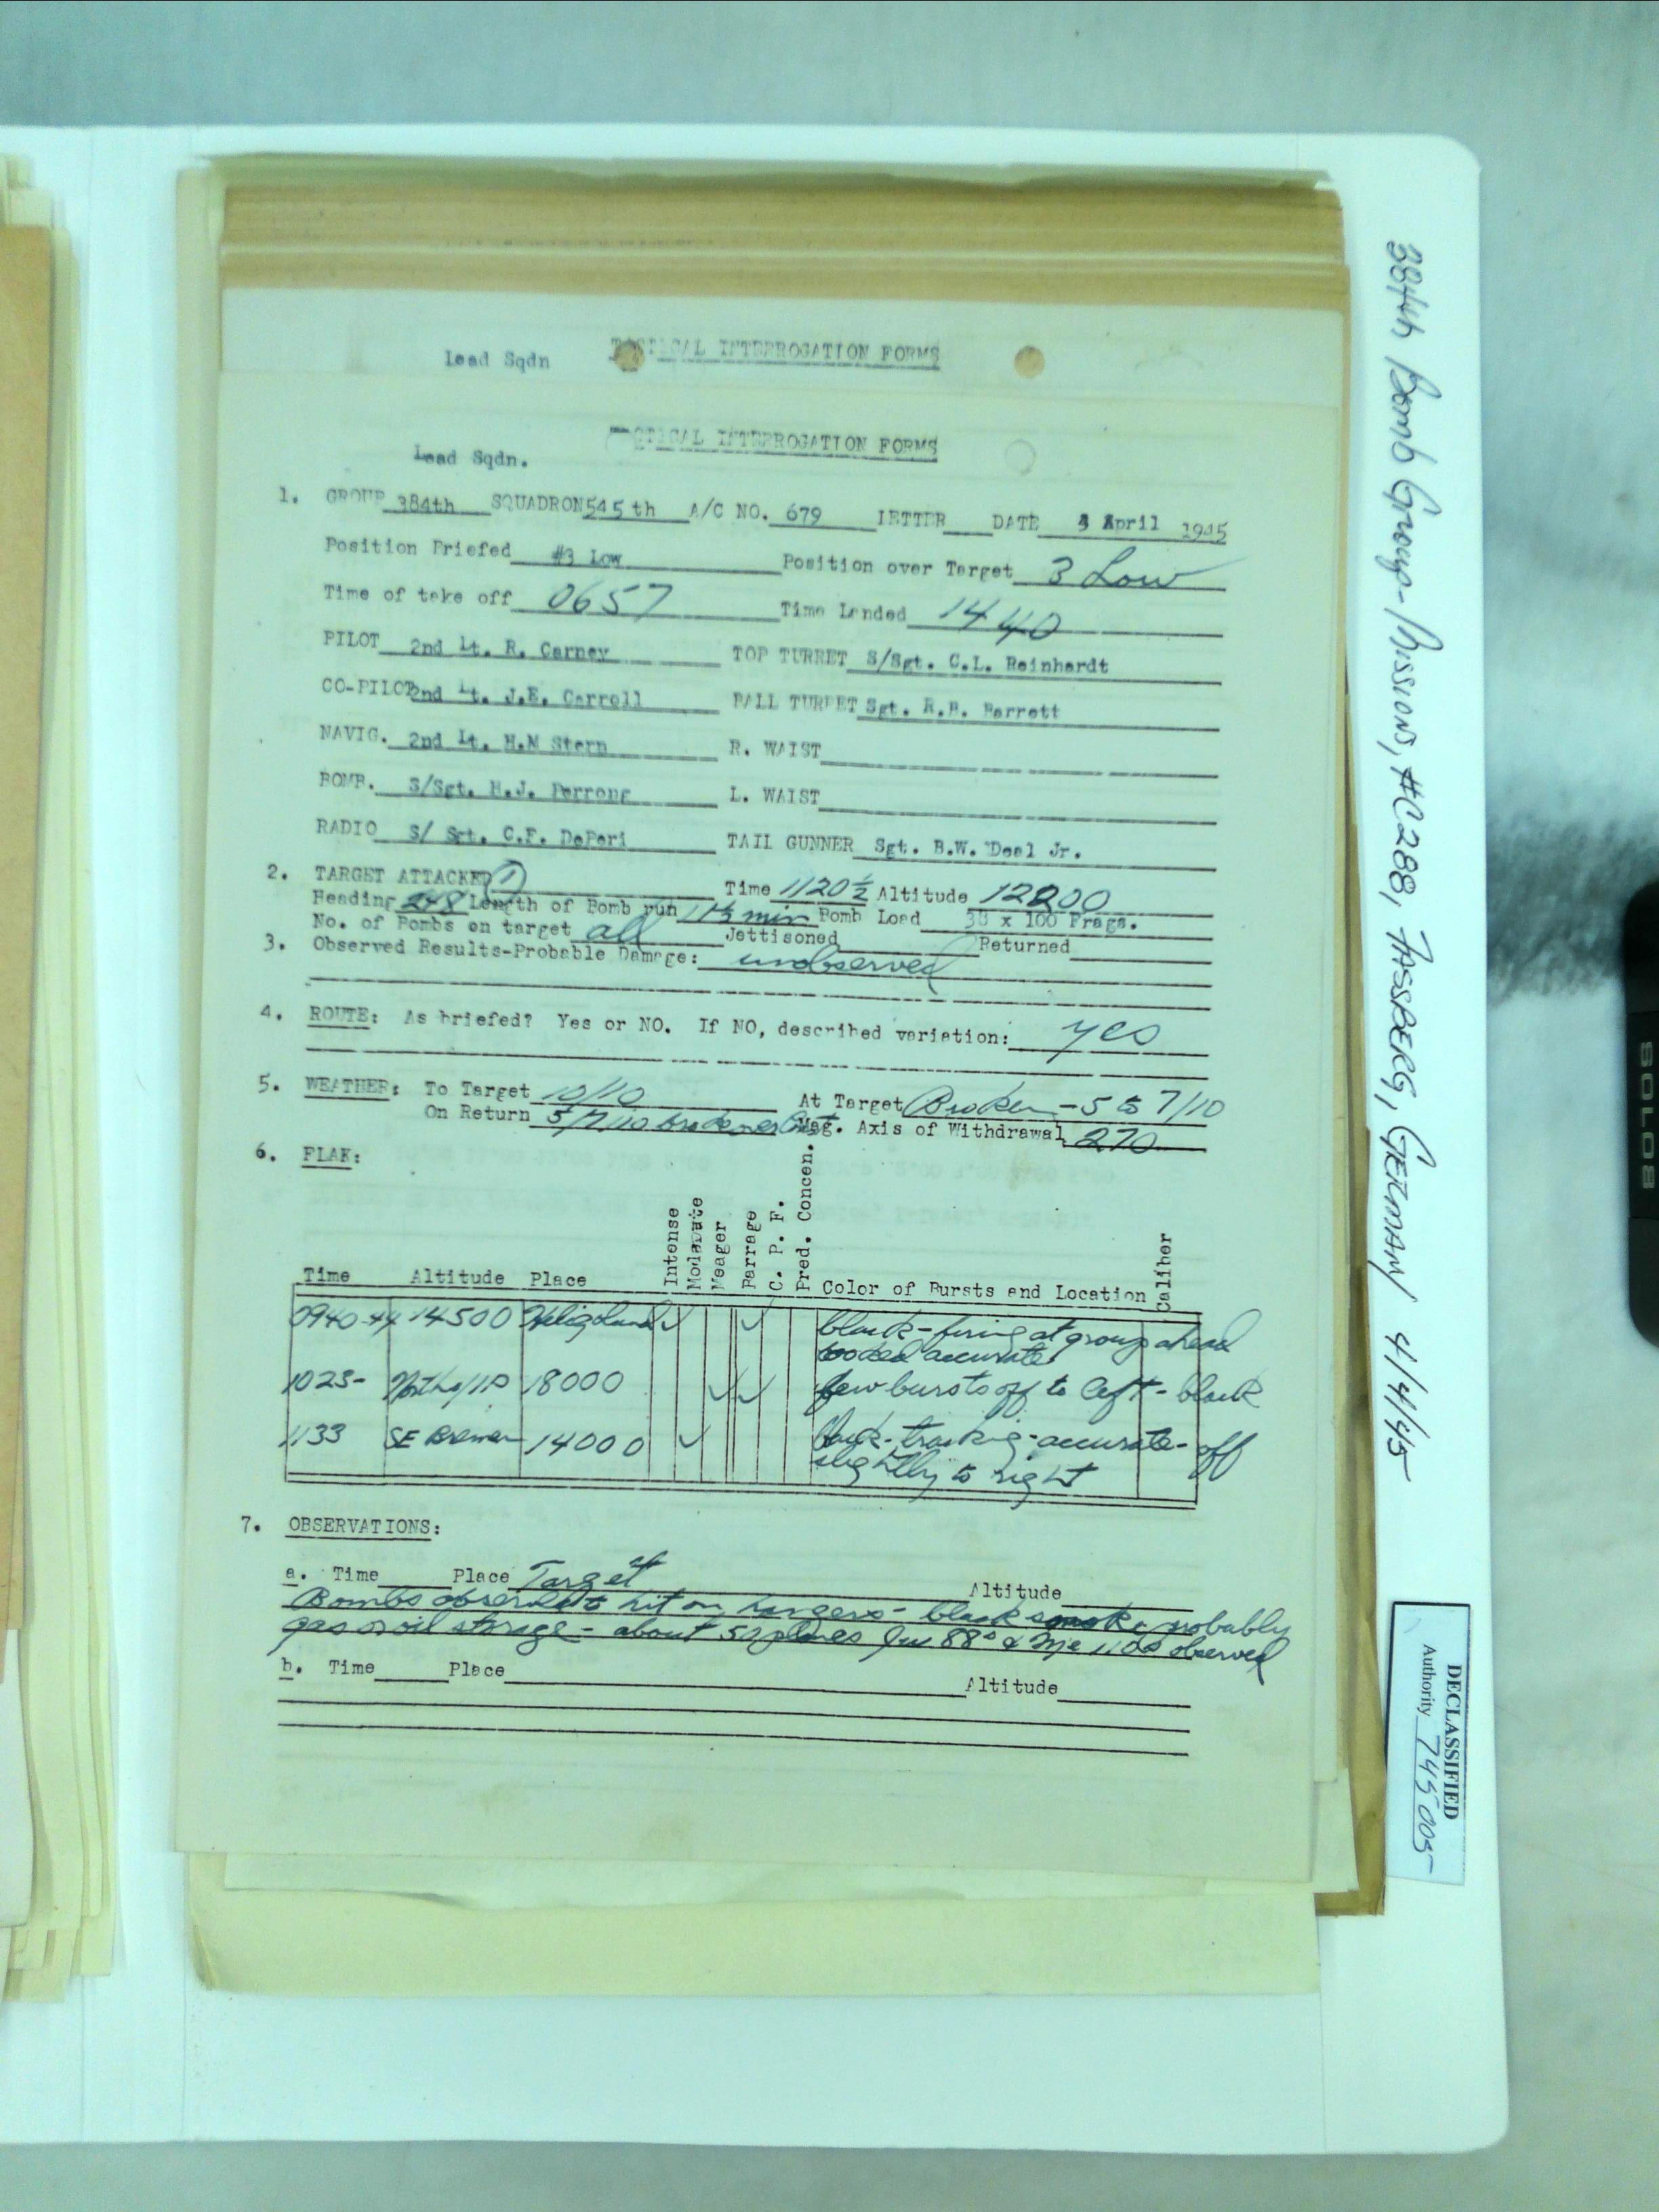 Lead Sqdn
TACTICAL INTERROGATION FORMS
TACTICAL INTERROGATION FORMS
Lead Sqdn.
1. GROUP 384th SQUADRON 545 th A/C NO. 679 LETTER DATE 4 April 1945
Position Briefed #3 Low Position over Target 3 Low
Time of take off 0657 Time Landed 1440
PILOT 2nd Lt. R. Carney TOP TURRET S/Sgt. C.L. Reinhardt
CO-PILOT 2nd Lt. J.E. Carroll BALL TURRET Sgt. R.B. Barrett
NAVIG. 2nd Lt. H.M Stern R. WAIST
BOMB. S/Sgt. H.J. Perrong L. WAIST
RADIO S/ Sgt. C.F. DePeri TAIL GUNNER Sgt. B.W. Deal Jr.
2. TARGET ATTACKED 1 Time 1120½ Altitude 12200
Heading 248 Length of Bomb run 1½ min Bomb Load 38 x 100 Frags.
No. of Bombs on target all Jettisoned Returned
3. Observed Results-Probable Damage: unobserved
4. ROUTE: As briefed? Yes or NO. If NO, described variation: yes
5. WEATHER: To Target 10/10 At Target Broken - 5 to 7/10
On Return 5/7/10 Mag. Axis of Withdrawal 270
6. FLAK:
Time Altitude Place Intense Moderate Meager Barrage C. P. F. Pred. Concen. Color of Bursts and Location Caliber
0940-44 14500 Heligoland ✓ ✓ black - firing at group ahead
looked accurate
1025- North of IP 18000 ✓ ✓ few bursts off to left - black
1133 SE Bremen 14000 ✓ black - tracking - accurate - off
slightly to right
7. OBSERVATIONS:
a. Time Place Target Altitude
Bombs observed to hit on hangers - black smoke, probably
gas or oil storage - about 50 planes Ju 88s & Me 110s observed
b. Time Place Altitude
384th Bomb Group - Mission, #C288, FASSBERG, GERMANY 4/4/45
DECLASSIFIED
Authority 745005
SOLOB